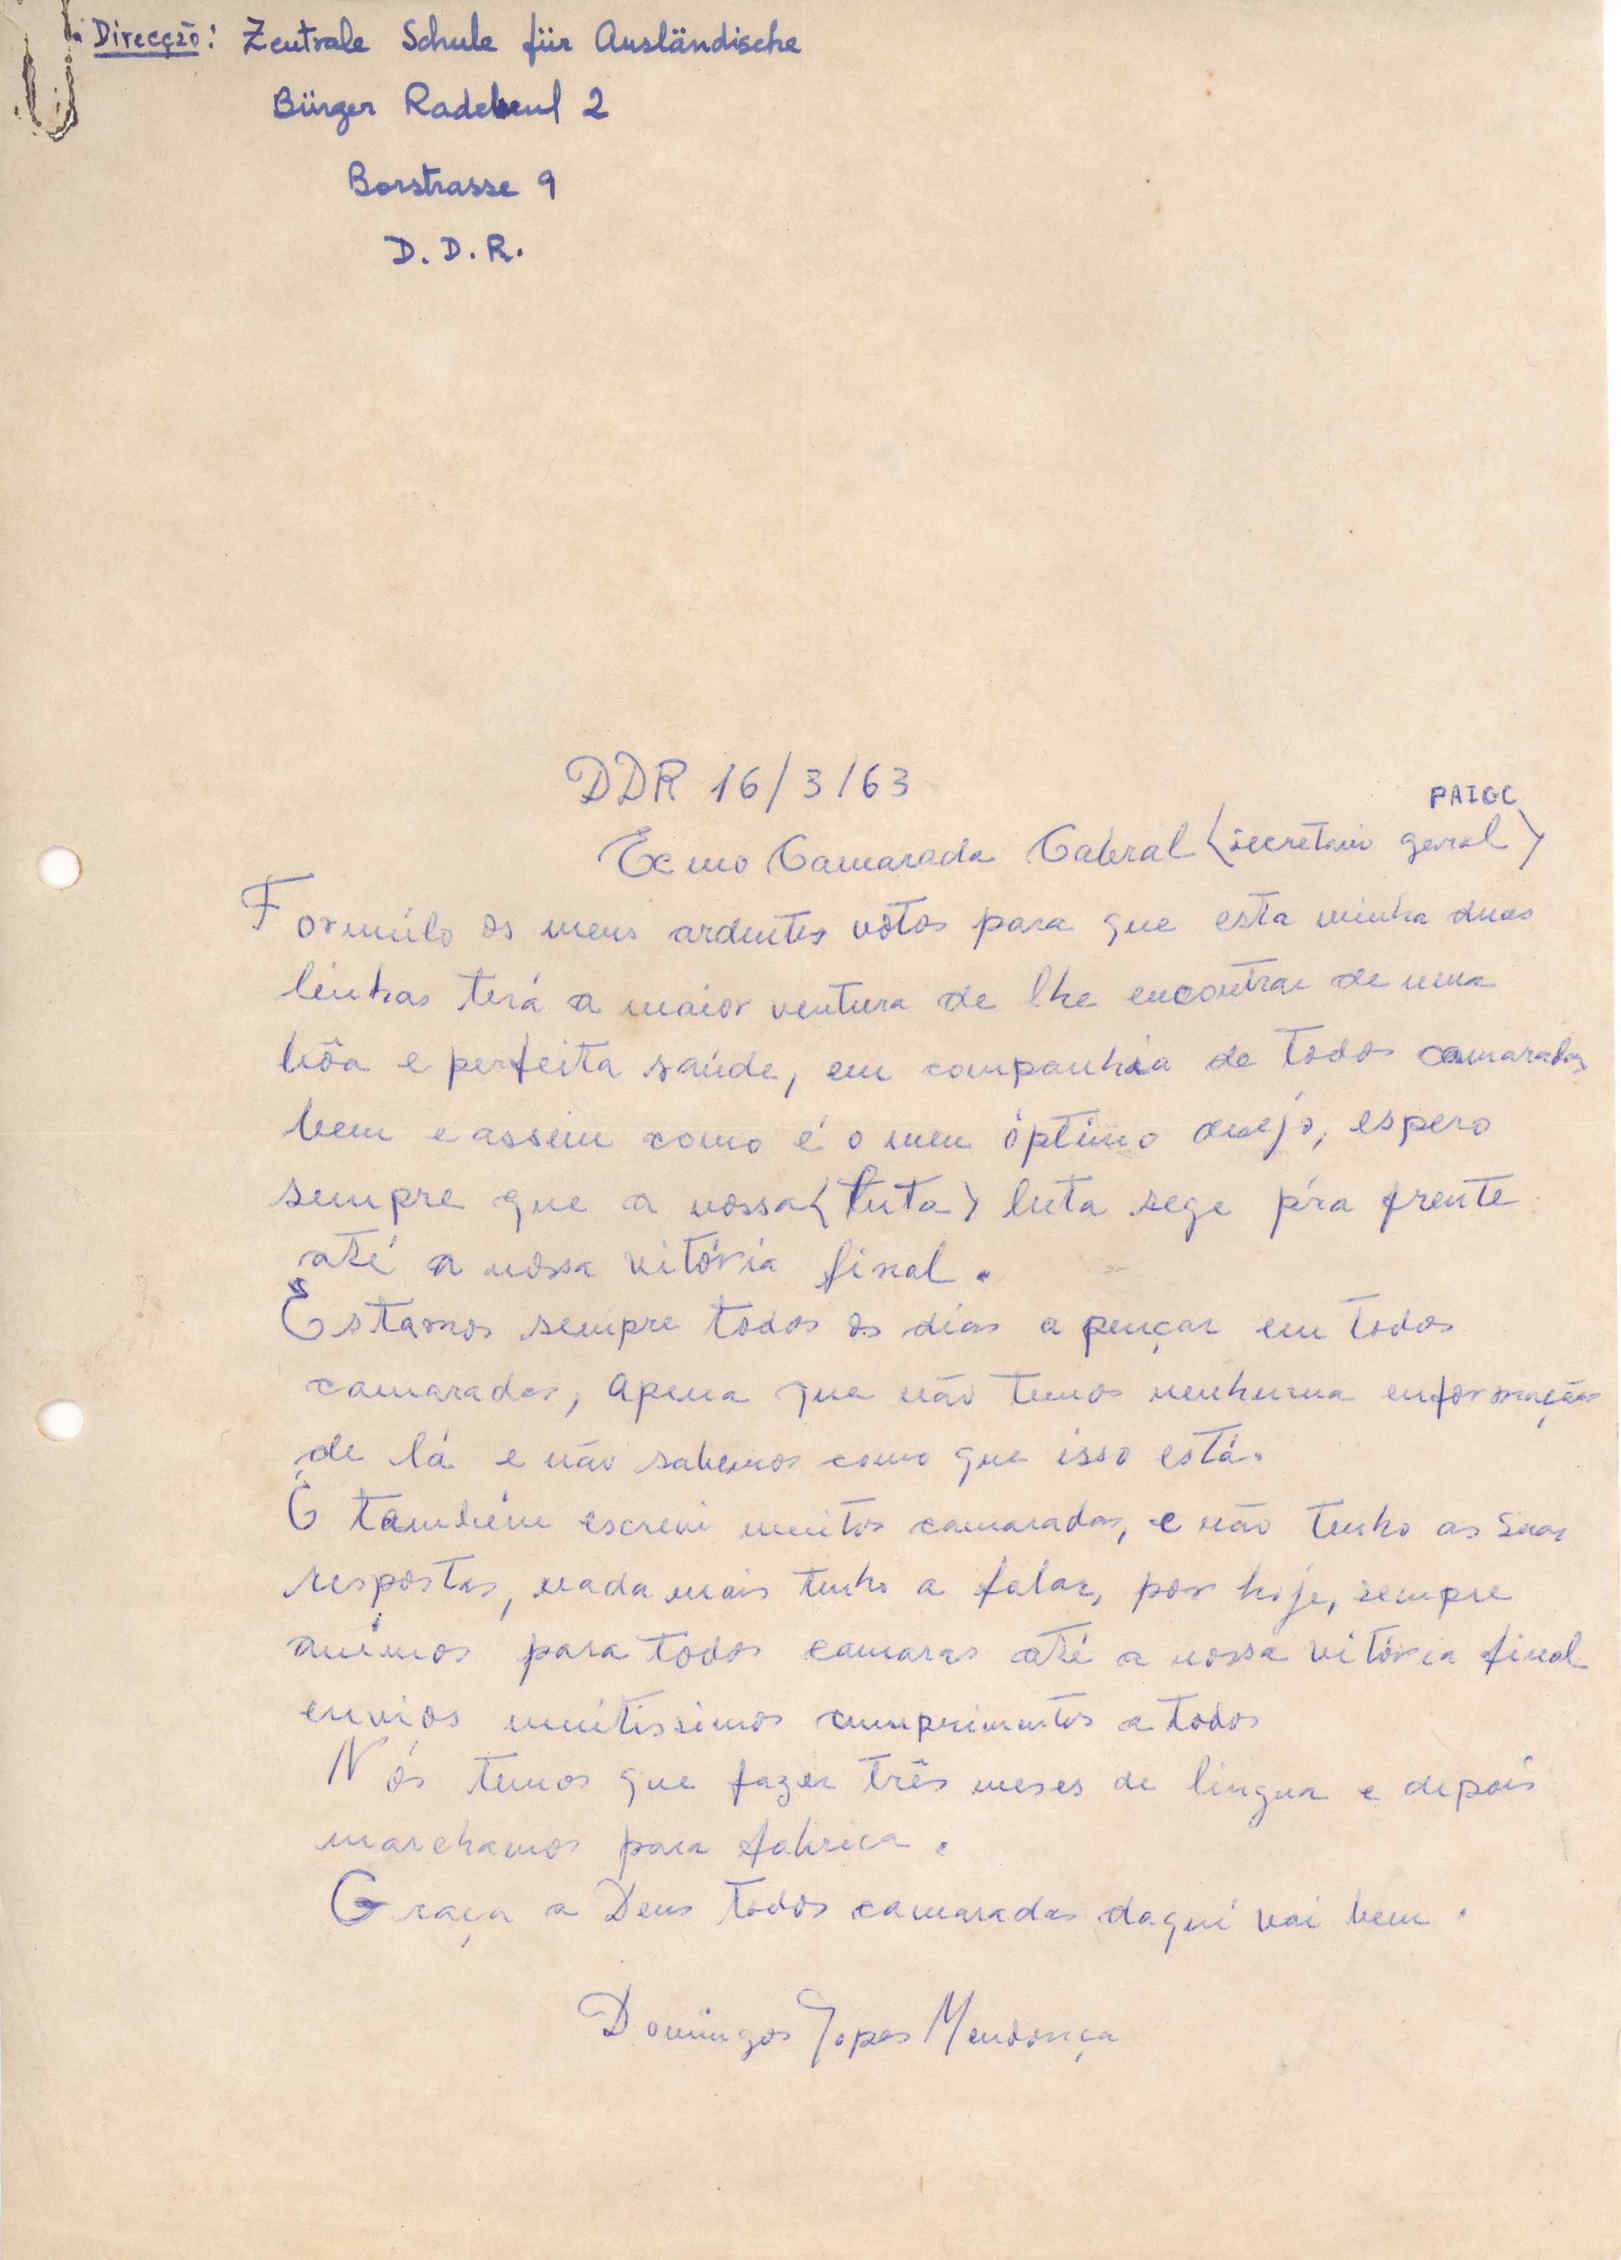 Direcção: Zentrale Schule für Ausländische
Bürger Radebeul 2
Borstrasse 9
D. D. R.
DDR 16/3/63
PAIGC
Exmo Camarada Cabral <secretario geral>
Formúlo os meus ardentes vótos para que esta minha duas
linhas terá a maior ventura de lhe encontrar de uma
bôa e perfeita saúde, em companhia de todos camaradas
bem e assim como é o meu óptimo desejo, espero
sempre que a nossa <tuta> luta sege p'ra frente
até a nossa vitória final.
Estamos sempre todos os dias a pençar em todos
camaradas, apena que não temos nenhuma enformações
de lá e não sabemos como que isso está.
E também escrevi muitos camaradas, e não tenho as suas
respostas, nada mais tenho a falar, por hoje, sempre
animos para todos camaras até a nossa vitória final
envios muitissimos cumprimentos a todos
Nós temos que fazer três meses de lingua e depois
marchamos para fabrica.
Graça a Deus todos camaradas daqui vai bem.
Domingos Lopes Mendonça